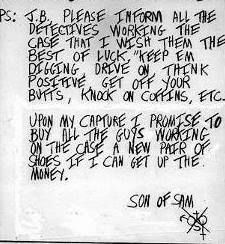 PS: J.B. PLEASE INFORM ALL THE
DETECTIVES WORKING THE
CASE THAT I WISH THEM THE
BEST OF LUCK. "KEEP EM
DIGGING, DRIVE ON, THINK
POSITIVE, GET OFF YOUR
BUTTS, KNOCK ON COFFINS, ETC.
UPON MY CAPTURE I PROMISE TO
BUY ALL THE GUYS WORKING
ON THE CASE A NEW PAIR OF
SHOES IF I CAN GET UP THE
MONEY.
SON OF SAM